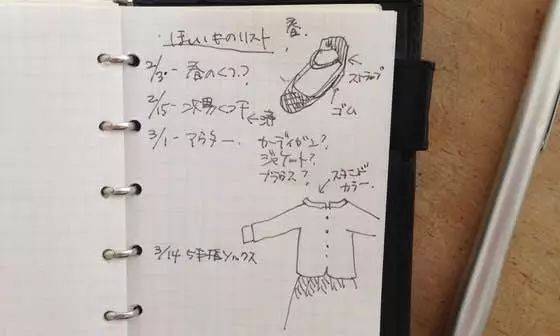 ほしいものリスト
2/3 - 春のくつ?
春
ストラップ
ゴム
2/15 - 次男くつ下 ← 済
3/1 - アウター
カーディガン?
ジャケット?
ブラウス?
スタンドカラー
3/14 5本指ソックス